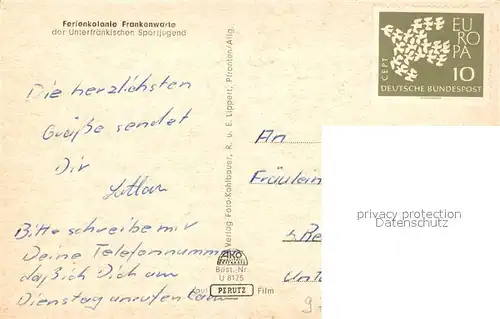 Ferienkolonie Frankenwarte
der Unterfränkischen Sportjugend
Die herzlichsten
Grüße sendet
Dir
Lothar
Bitte schreibe mir
Deine Telefonnummer
daß ich Dich am
Dienstag anrufen kann
Verlag Foto-Kohlbauer, R. u. E. Lippert, Pfronten/Allg.
AKO
Best.-Nr.
U 8175
auf PERUTZ Film
EUROPA
CEPT
10
DEUTSCHE BUNDESPOST
An
Fräulein
privacy protection
Datenschutz